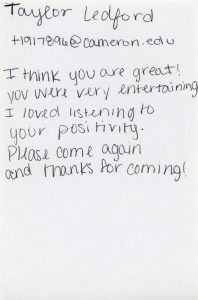 Taylor Ledford
t1917896@cameron.edu
I think you are great!
you were very entertaining
I loved listening to
your positivity.
Please come again
and thanks for coming!